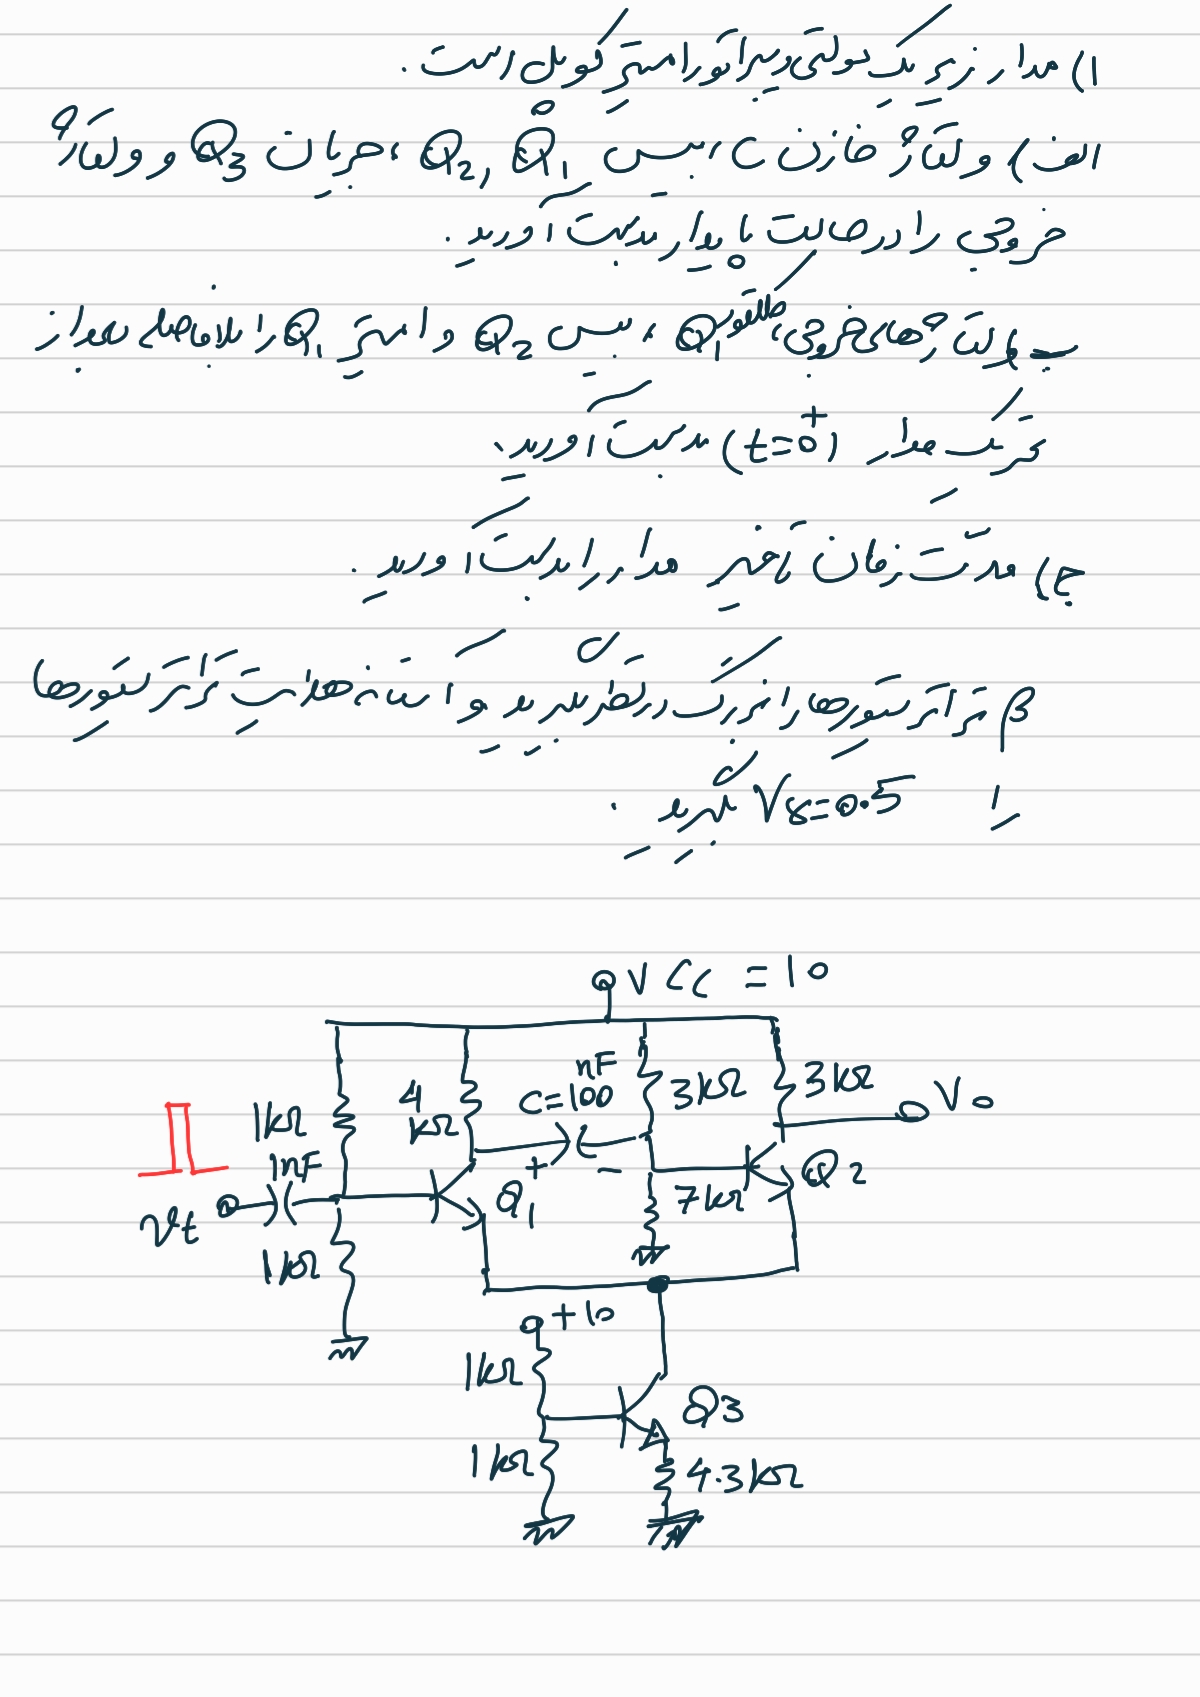 ۱) مدار زیر یک مولتی ویبراتور امیتر کوپل است.
الف) ولتاژ خازن C، بیس Q1 و Q2، جریان Q3 و ولتاژ
خروجی را در حالت پایدار بدست آورید.
ب) ولتاژهای خروجی، کلکتور Q1، بیس Q2 و امیتر Q1 را بلافاصله بعد از
تحریک مدار (t=0+) بدست آورید.
ج) مدت زمان تأخیر مدار را بدست آورید.
β ترانزیستورها را بزرگ در نظر بگیرید و آستانه هدایت ترانزیستورها
را Vγ=0.5 بگیرید.
VCC=10
1kΩ
4kΩ
C=100nF
3kΩ
3kΩ
Vo
1nF
vt
Q1
+
-
7kΩ
Q2
1kΩ
+10
1kΩ
Q3
1kΩ
4.3kΩ